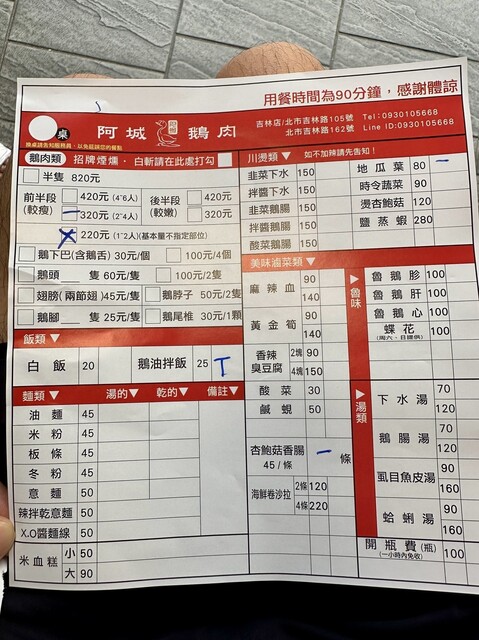 用餐時間為90分鐘，感謝體諒
桌
換桌請告知服務員，以免延誤您的餐點
阿城 鵝肉
吉林店/北市吉林路105號 Tel：0930105668
北市吉林路162號 Line ID:0930105668
鵝肉類 招牌煙燻，白斬請在此處打勾
半隻 820元
前半段 (較瘦) 420元(4~6人) 320元(2~4人)
後半段 (較嫩) 420元 320元
220元(1~2人)(基本量不指定部位)
鵝下巴(含鵝舌) 30元/個 100元/4個
鵝頭 隻 60元/隻 100元/2隻
翅膀(兩節翅)45元/隻 鵝脖子 50元/2隻
鵝腳 隻 25元/隻 鵝尾椎 30元/1顆
飯類▼
白飯 20 鵝油拌飯 25 T
麵類▼ 湯的▼ 乾的▼ 備註▼
油麵 45
米粉 45
板條 45
冬粉 45
意麵 50
辣拌乾意麵 50
X.O醬麵線 50
米血糕 小 50
大 90
川燙類▼ 如不加辣請先告知！
韭菜下水 150
拌醬下水 150
韭菜鵝腸 150
拌醬鵝腸 150
酸菜鵝腸 150
地瓜葉 80 一
時令蔬菜 90
燙杏鮑菇 120
鹽蒸蝦 280
美味滷菜類▼
麻辣血 90 140
黃金筍 90 140
香辣臭豆腐 2塊 90 4塊 150
酸菜 30
鹹蜆 50
杏鮑菇香腸 45/條 一 條
海鮮卷沙拉 2條 120 4條 220
▶魯味
魯鵝胗 100
魯鵝肝 100
魯鵝心 100
蝶花 100
(周六、日提供)
▶湯類
下水湯 70 120
鵝腸湯 70 120
虱目魚皮湯 90 160
蛤蜊湯 90 160
開瓶費(瓶) 100
(一小時內免收)